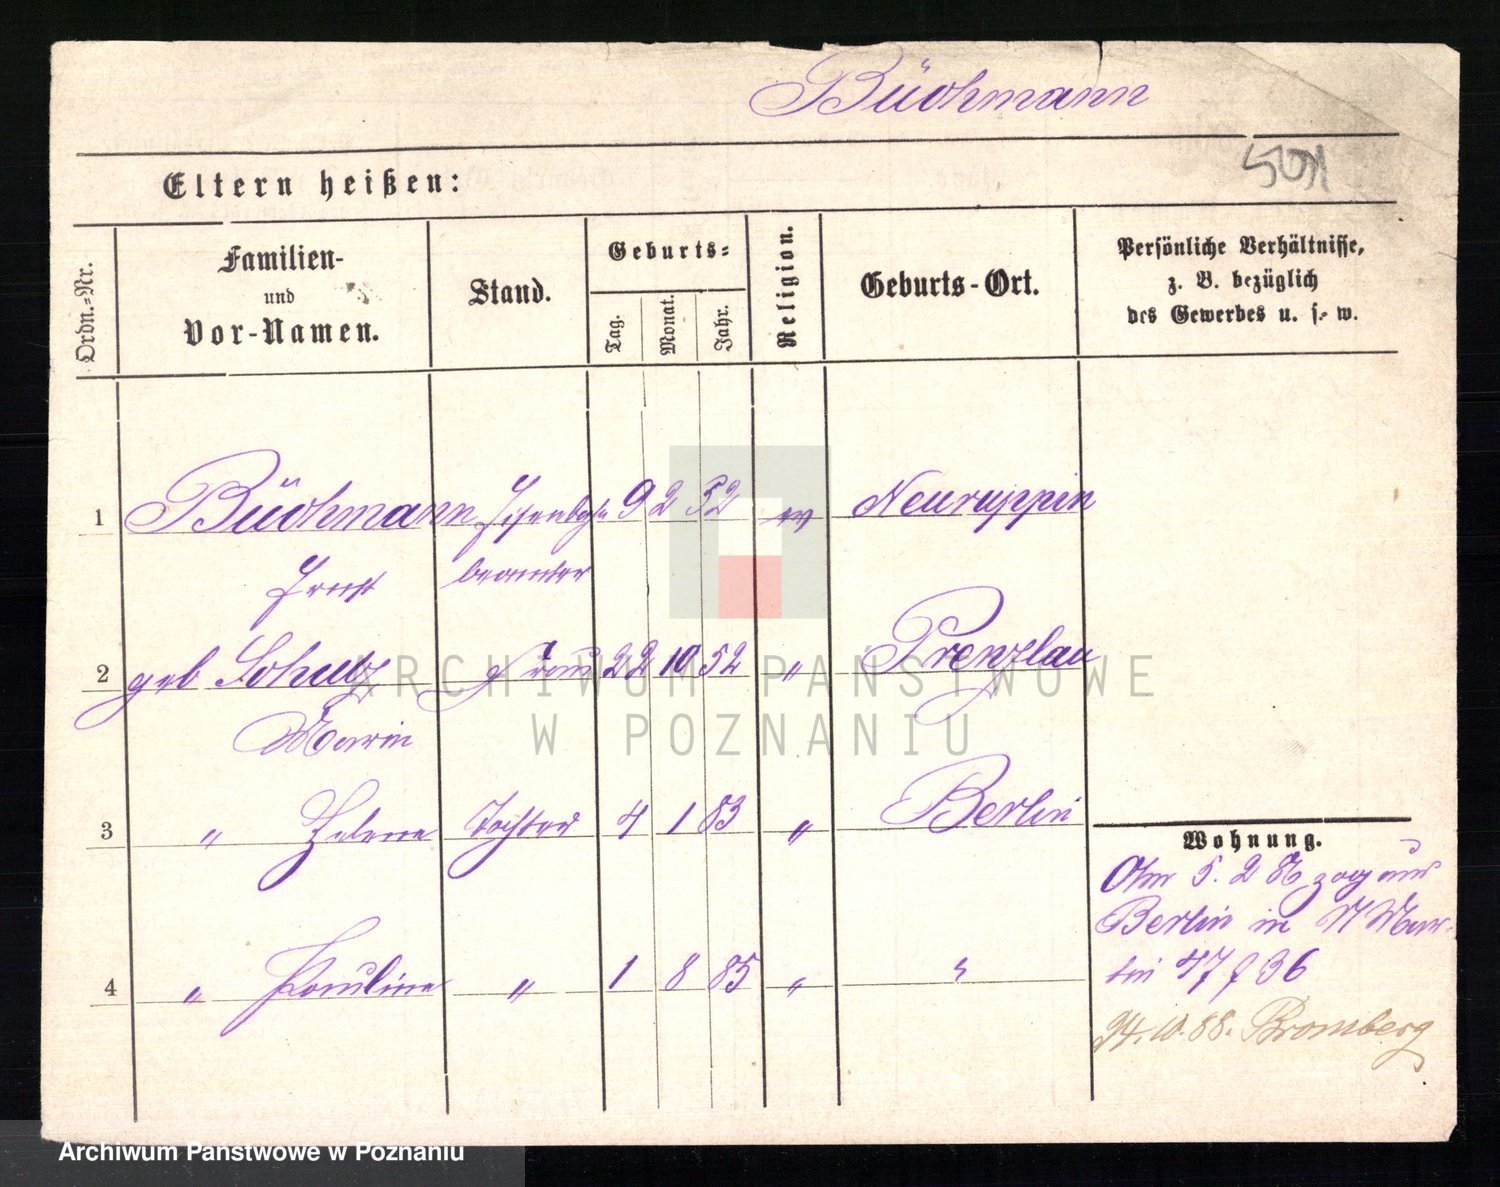 Büchmann
Eltern heißen:
501
Ordn.-Nr.
Familien-
und
Vor-Namen.
Stand.
Geburts-
Tag.
Monat.
Jahr.
Religion.
Geburts-Ort.
Persönliche Verhältnisse,
z. B. bezüglich
des Gewerbes u. s. w.
1 Büchmann 9 2 52 ev Neuruppin
Ernst beamter
2 geb Schulz Frau 22 10 52 " Prenzlau
Marie
3 " Helene Tochter 4 1 83 " Berlin
4 " Pauline " 1 8 85 " "
Wohnung.
Am 5. 2 86 zog aus
Berlin in St Mar-
tin 47 36
24.10.88. Bromberg
ARCHIWUM PAŃSTWOWE
W POZNANIU
Archiwum Państwowe w Poznaniu